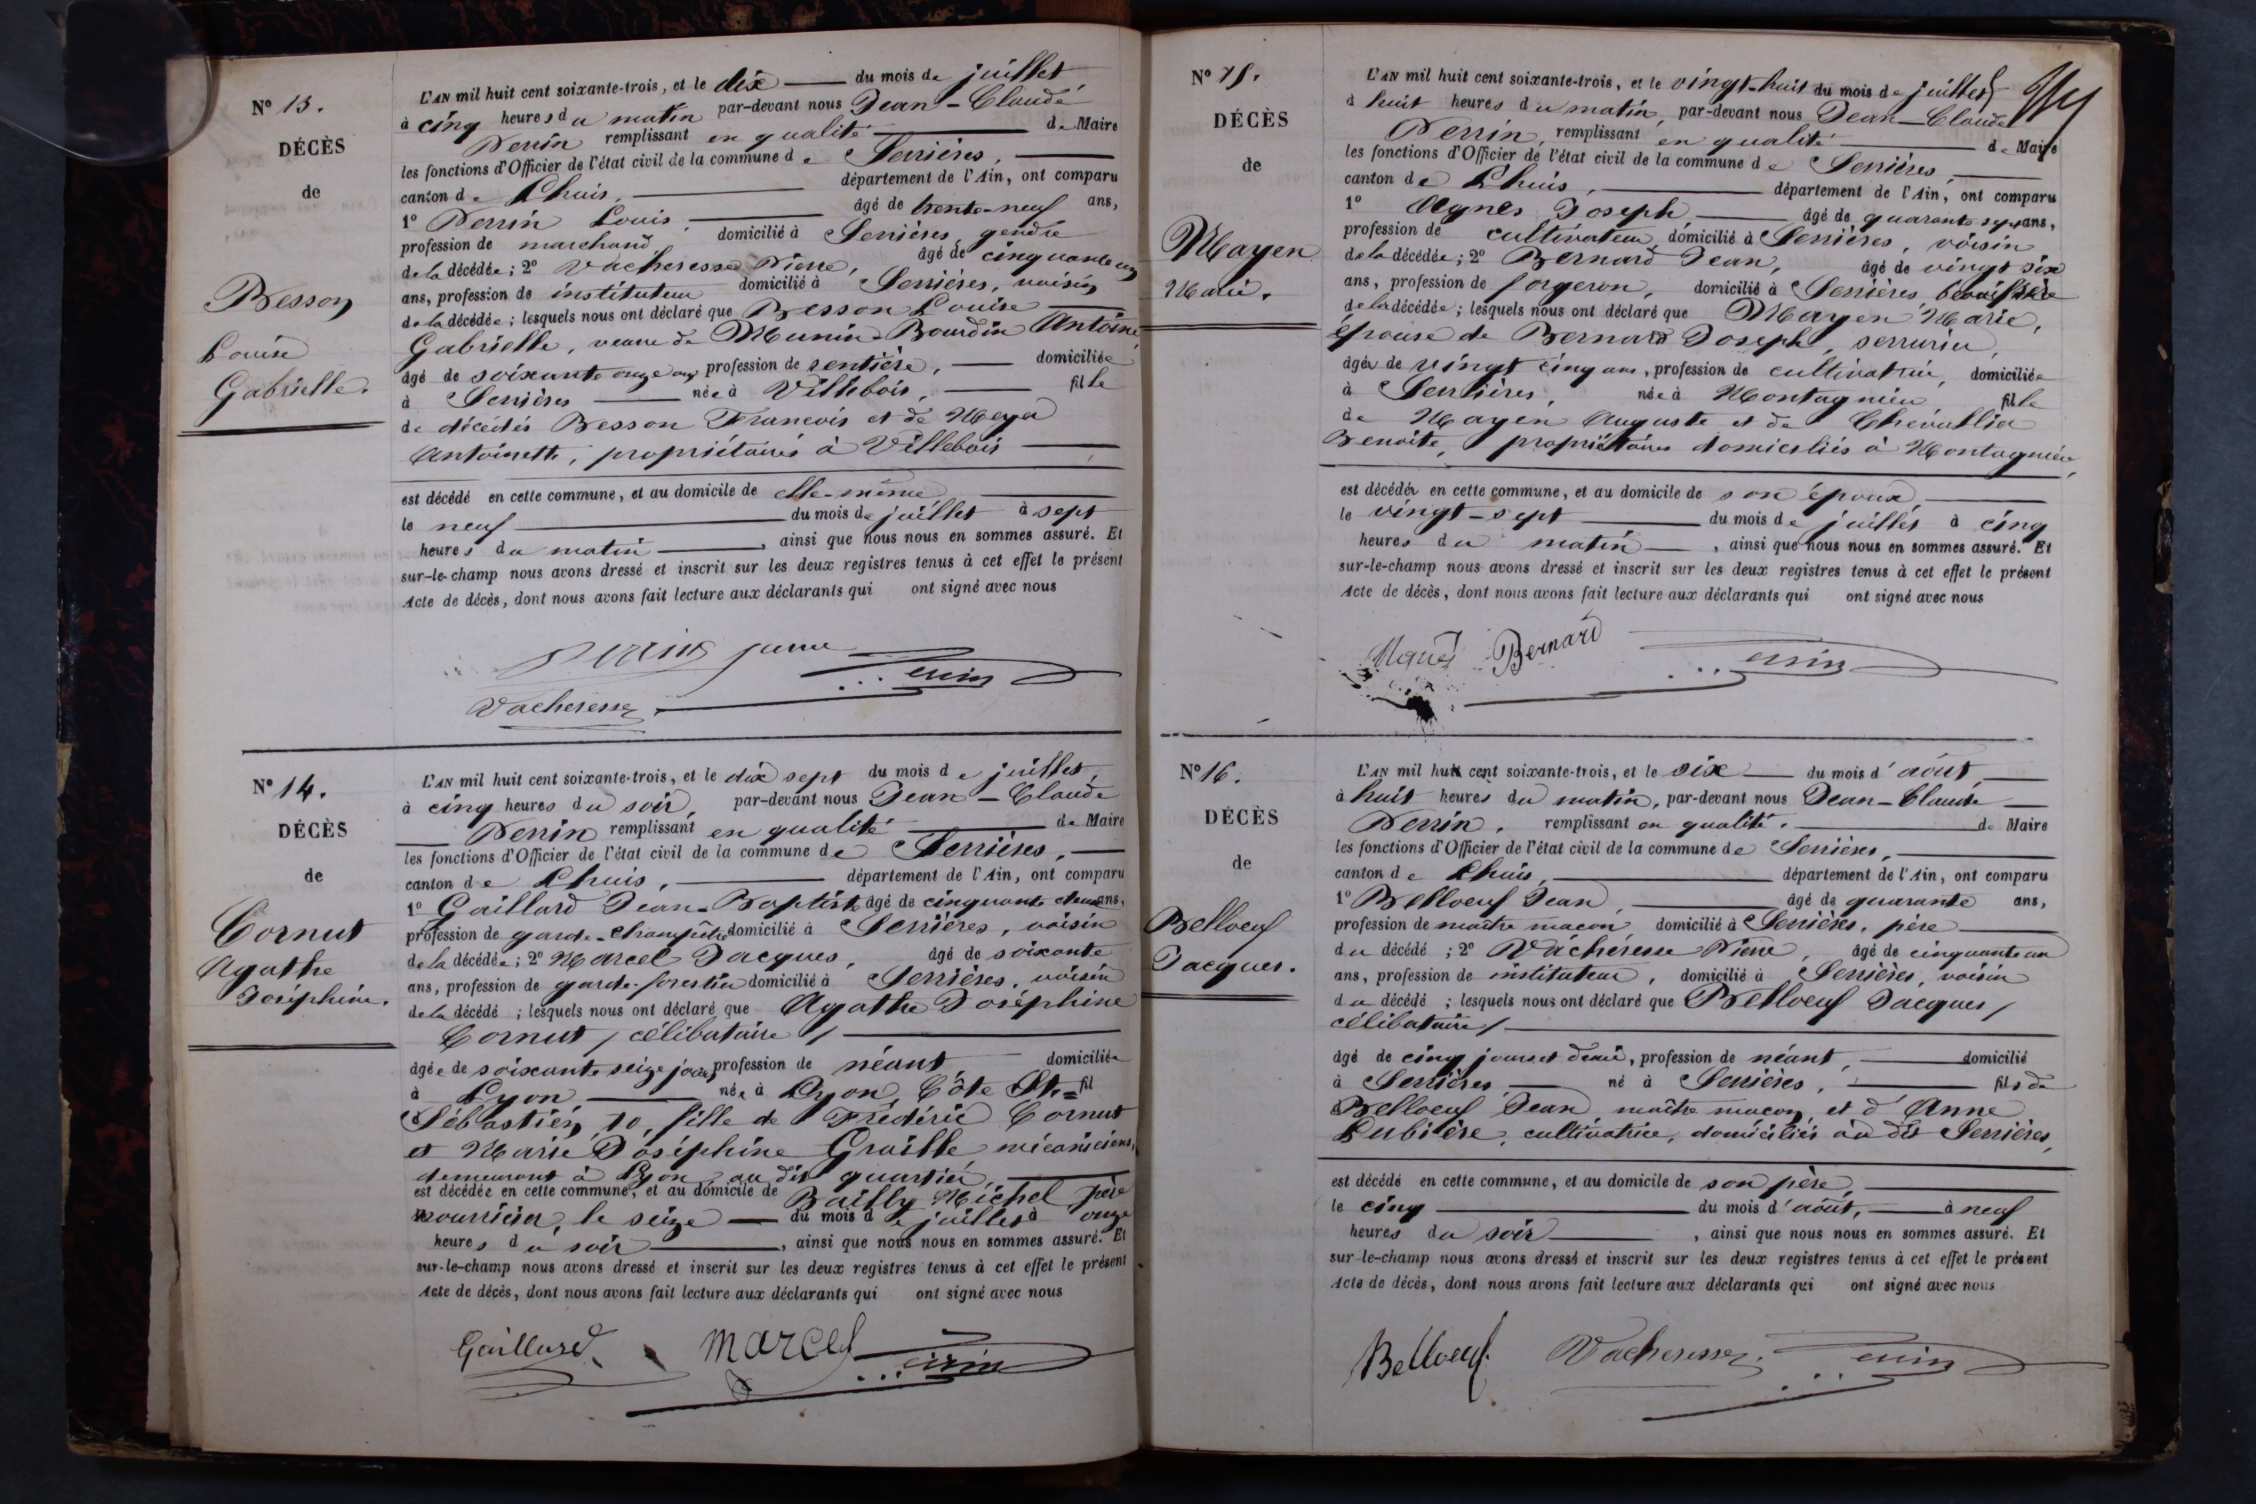 N° 13.
DÉCÈS
de
Besson
Louise
Gabrielle.
L'AN mil huit cent soixante-trois, et le dix du mois de juillet,
à cinq heures du matin par-devant nous Jean-Claude
Perrin remplissant en qualité de Maire
les fonctions d'Officier de l'état civil de la commune de Serrières,
canton de Lhuis, département de l'Ain, ont comparu
1° Perrin Louis, âgé de trente-neuf ans,
profession de marchand domicilié à Serrières, gendre
de la décédée; 2° Vacheresse Pierre, âgé de cinquante un
ans, profession de instituteur domicilié à Serrières, voisin
de la décédée; lesquels nous ont déclaré que Besson Louise
Gabrielle, veuve de Munin-Bourdin Antoine,
âgé de soixante onze ans profession de rentière, domiciliée
à Serrières née à Villebois, fille
de décédés Besson François et de Meyer
Antoinette, propriétaires à Villebois
est décédé en cette commune, et au domicile de elle-même
le neuf du mois de juillet à sept
heures du matin, ainsi que nous nous en sommes assuré. Et
sur-le-champ nous avons dressé et inscrit sur les deux registres tenus à cet effet le présent
Acte de décès, dont nous avons fait lecture aux déclarants qui ont signé avec nous
Perrin
Perrin
Vacheresse
N° 14.
DÉCÈS
de
Cornut
Agathe
Joséphine.
L'AN mil huit cent soixante-trois, et le dix sept du mois de juillet,
à cinq heures du soir, par-devant nous Jean-Claude
Perrin remplissant en qualité de Maire
les fonctions d'Officier de l'état civil de la commune de Serrières,
canton de Lhuis, département de l'Ain, ont comparu
1° Gaillard Jean-Baptiste âgé de cinquante deux ans,
profession de garde-champêtre domicilié à Serrières, voisin
de la décédée; 2° Marcel Jacques, âgé de soixante
ans, profession de garde-forestier domicilié à Serrières, voisin
de la décédé; lesquels nous ont déclaré que Agathe Joséphine
Cornut, célibataire,
âgée de soixante seize jours profession de néant domiciliée
à Lyon née à Lyon, Côte St= fil
Sébastien, 10, fille de Frédéric Cornut
et Marie Joséphine Graille, mécaniciens,
demeurant à Lyon au dit quartier,
est décédée en cette commune, et au domicile de Bailly Michel père
nourricier, le seize du mois de juillet à onze
heures du soir, ainsi que nous nous en sommes assuré. Et
sur-le-champ nous avons dressé et inscrit sur les deux registres tenus à cet effet le présent
Acte de décès, dont nous avons fait lecture aux déclarants qui ont signé avec nous
Gaillard
Marcel
Perrin
N° 15.
DÉCÈS
de
Mayen
Marie.
L'AN mil huit cent soixante-trois, et le vingt-huit du mois de juillet,
à huit heures du matin, par-devant nous Jean-Claude
Perrin, remplissant en qualité de Maire
les fonctions d'Officier de l'état civil de la commune de Serrières,
canton de Lhuis, département de l'Ain, ont comparu
1° Agnès Joseph âgé de quarante sept ans,
profession de cultivateur, domicilié à Serrières, voisin
de la décédée; 2° Bernard Jean, âgé de vingt six
ans, profession de forgeron, domicilié à Serrières, beau-frère
de la décédée; lesquels nous ont déclaré que Mayen Marie,
épouse de Bernard Joseph, serrurier,
âgée de vingt cinq ans, profession de cultivatrice, domiciliée
à Serrières, née à Montagnieu fille
de Mayen Auguste et de Chevallier
Benoîte, propriétaires domiciliés à Montagnieu,
est décédée en cette commune, et au domicile de son époux,
le vingt-sept du mois de juillet à cinq
heures du matin, ainsi que nous nous en sommes assuré. Et
sur-le-champ nous avons dressé et inscrit sur les deux registres tenus à cet effet le présent
Acte de décès, dont nous avons fait lecture aux déclarants qui ont signé avec nous
Agnès
Bernard
Perrin
N° 16.
DÉCÈS
de
Belloeuf
Jacques.
L'AN mil huit cent soixante-trois, et le six du mois d'août,
à huit heures du matin, par-devant nous Jean-Claude
Perrin, remplissant en qualité de Maire
les fonctions d'Officier de l'état civil de la commune de Serrières,
canton de Lhuis, département de l'Ain, ont comparu
1° Belloeuf Jean, âgé de quarante ans,
profession de maître maçon, domicilié à Serrières, père
du décédé; 2° Vacheresse Pierre, âgé de cinquante un
ans, profession de instituteur, domicilié à Serrières, voisin
du décédé; lesquels nous ont déclaré que Belloeuf Jacques,
célibataire,
âgé de cinq jours et demi, profession de néant, domicilié
à Serrières, né à Serrières, fils de
Belloeuf Jean, maître maçon, et d'Anne
Lubière, cultivatrice, domiciliés au dit Serrières,
est décédé en cette commune, et au domicile de son père,
le cinq du mois d'août, à neuf
heures du soir, ainsi que nous nous en sommes assuré. Et
sur-le-champ nous avons dressé et inscrit sur les deux registres tenus à cet effet le présent
Acte de décès, dont nous avons fait lecture aux déclarants qui ont signé avec nous
Belloeuf
Vacheresse
Perrin